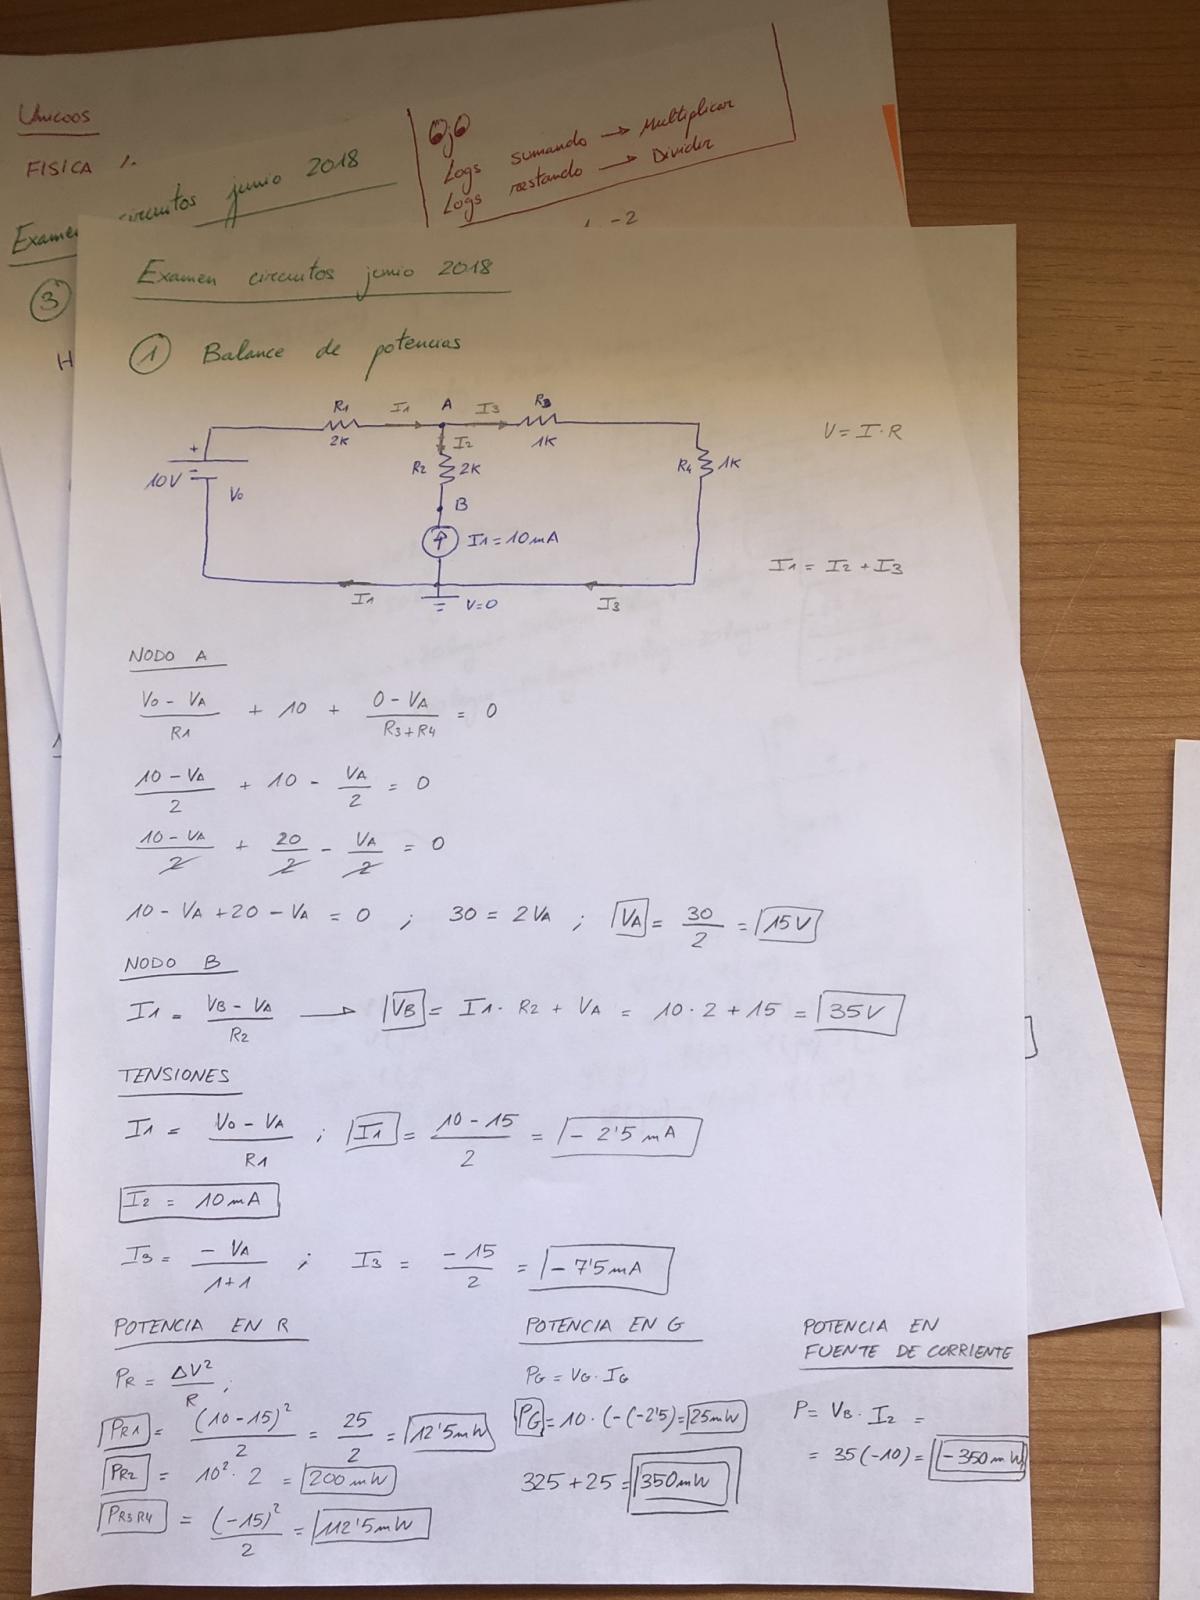 Unicoos
FISICA 1.
Examen circuitos junio 2018
3
H
Ojo
Logs sumando → Multiplicar
Logs restando → Dividir
-2
Examen circuitos junio 2018
1 Balance de potencias
R1 I1 A I3 R3
2K 1K
I2
R2 2K
R4 1K
V = I·R
+
10V
V0
B
I1=10mA
I1 = I2 + I3
I1 V=0 I3
NODO A
V0 - VA / R1 + 10 + 0 - VA / R3+R4 = 0
10 - VA / 2 + 10 - VA / 2 = 0
10 - VA / 2 + 20 / 2 - VA / 2 = 0
10 - VA + 20 - VA = 0 ; 30 = 2VA ; VA = 30 / 2 = 15V
NODO B
I1 = VB - VA / R2 → VB = I1 · R2 + VA = 10 · 2 + 15 = 35V
TENSIONES
I1 = V0 - VA / R1 ; I1 = 10 - 15 / 2 = - 2'5 mA
I2 = 10mA
I3 = - VA / 1+1 ; I3 = - 15 / 2 = - 7'5mA
POTENCIA EN R
PR = ΔV² / R ;
PR1 = (10-15)² / 2 = 25 / 2 = 12'5mW
PR2 = 10² · 2 = 200mW
PR3R4 = (-15)² / 2 = 112'5mW
POTENCIA EN G
PG = VG · IG
PG = 10 · (-(-2'5) = 25mW
325 + 25 = 350mW
POTENCIA EN
FUENTE DE CORRIENTE
P = VB · I2 =
= 35(-10) = -350mW